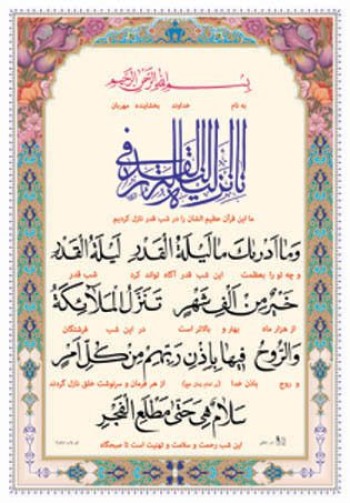 بسم الله الرحمن الرحیم
به نام خداوند بخشاینده مهربان
انا انزلناه فی لیلة القدر
ما این قرآن عظیم الشان را در شب قدر نازل کردیم
وما ادریك ما لیلة القدر لیلة القدر
و چه تو را بعظمت این شب قدر آگاه تواند کرد شب قدر
خیر من الف شهر تنزل الملائكة
از هزار ماه بهتر و بالاتر است در این شب فرشتگان
والروح فیها باذن ربهم من كل امر
و روح باذن خدا از هر فرمان و سرنوشت خلق نازل گردند
سلام هی حتی مطلع الفجر
این شب رحمت و سلامت و تهنیت است تا صبحگاه